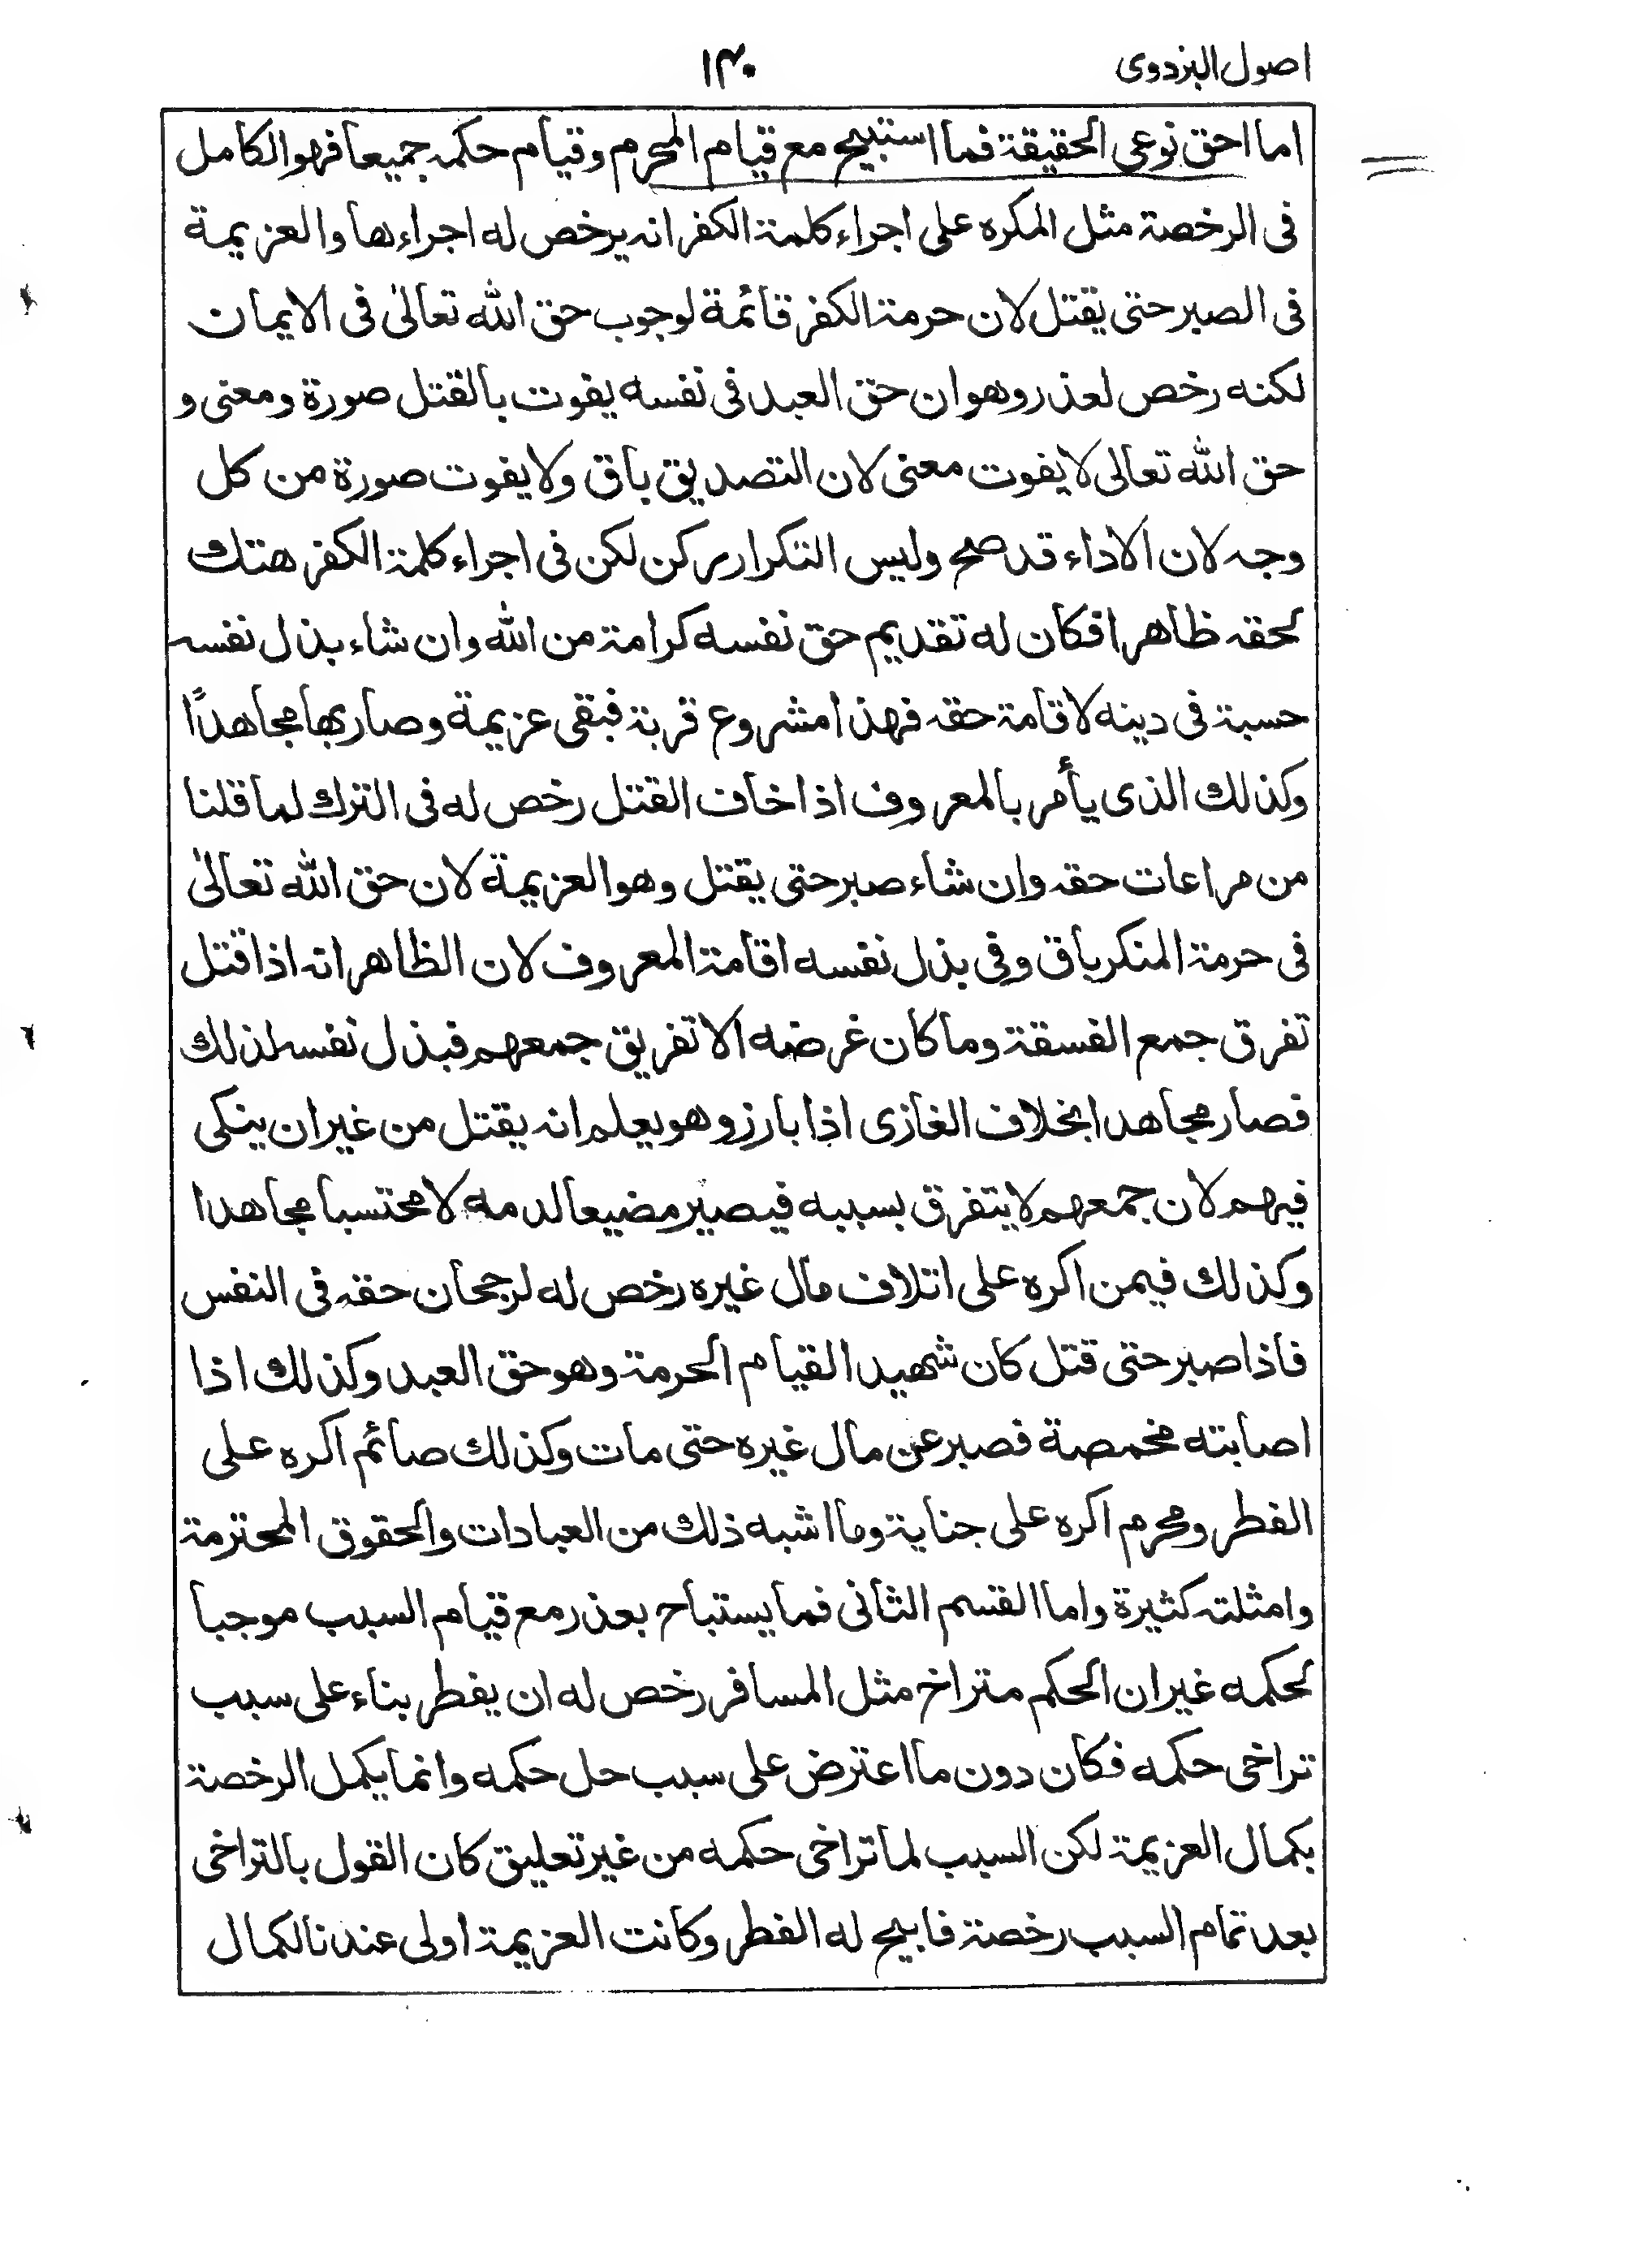 اصول البزدوى
۱۴۰
اما احق نوعى الحقيقة فما استبيح مع قيام المحرم وقيام حكمه جميعا فهو الكامل
فى الرخصة مثل المكره على اجراء كلمة الكفر انه يرخص له اجراءها والعزيمة
فى الصبر حتى يقتل لان حرمة الكفر قائمة لوجوب حق الله تعالىٰ فى الايمان
لكنه رخص لعذر وهو ان حق العبد فى نفسه يفوت بالقتل صورة ومعنى و
حق الله تعالى لا يفوت معنى لان التصديق باق ولا يفوت صورة من كل
وجه لان الاداء قد صح وليس التكرار بركن لكن فى اجراء كلمة الكفر هتك
لحقه ظاهرا فكان له تقديم حق نفسه كرامة من الله وان شاء بذل نفسه
حسبة فى دينه لاقامة حقه فهذا مشروع قربة فبقى عزيمة وصار بها مجاهدًا
وكذلك الذى يأمر بالمعروف اذا خاف القتل رخص له فى الترك لما قلنا
من مراعات حقه وان شاء صبر حتى يقتل وهو العزيمة لان حق الله تعالىٰ
فى حرمة المنكر باق وفى بذل نفسه اقامة المعروف لان الظاهر انه اذا قتل
تفرق جمع الفسقة وما كان غرضه الا تفريق جمعهم فبذل نفسه لذلك
فصار مجاهدا بخلاف الغازى اذا بارز وهو يعلم انه يقتل من غير ان ينكى
فيهم لان جمعهم لا يتفرق بسببه فيصير مضيعا لدمه لا محتسبا مجاهدا
وكذلك فيمن اكره على اتلاف مال غيره رخص له لرجحان حقه فى النفس
فاذا صبر حتى قتل كان شهيدا لقيام الحرمة وهو حق العبد وكذلك اذا
اصابته مخمصة فصبر عن مال غيره حتى مات وكذلك صائم اكره على
الفطر ومحرم اكره على جناية وما اشبه ذلك من العبادات والحقوق المحترمة
وامثلته كثيرة واما القسم الثانى فما يستباح بعذر مع قيام السبب موجبا
لحكمه غير ان الحكم متراخ مثل المسافر رخص له ان يفطر بناء على سبب
تراخى حكمه فكان دون ما اعترض على سبب حل حكمه وانما يكمل الرخصة
بكمال العزيمة لكن السبب لما تراخى حكمه من غير تعليق كان القول بالتراخى
بعد تمام السبب رخصة فابيح له الفطر وكانت العزيمة اولى عندنا لكمال